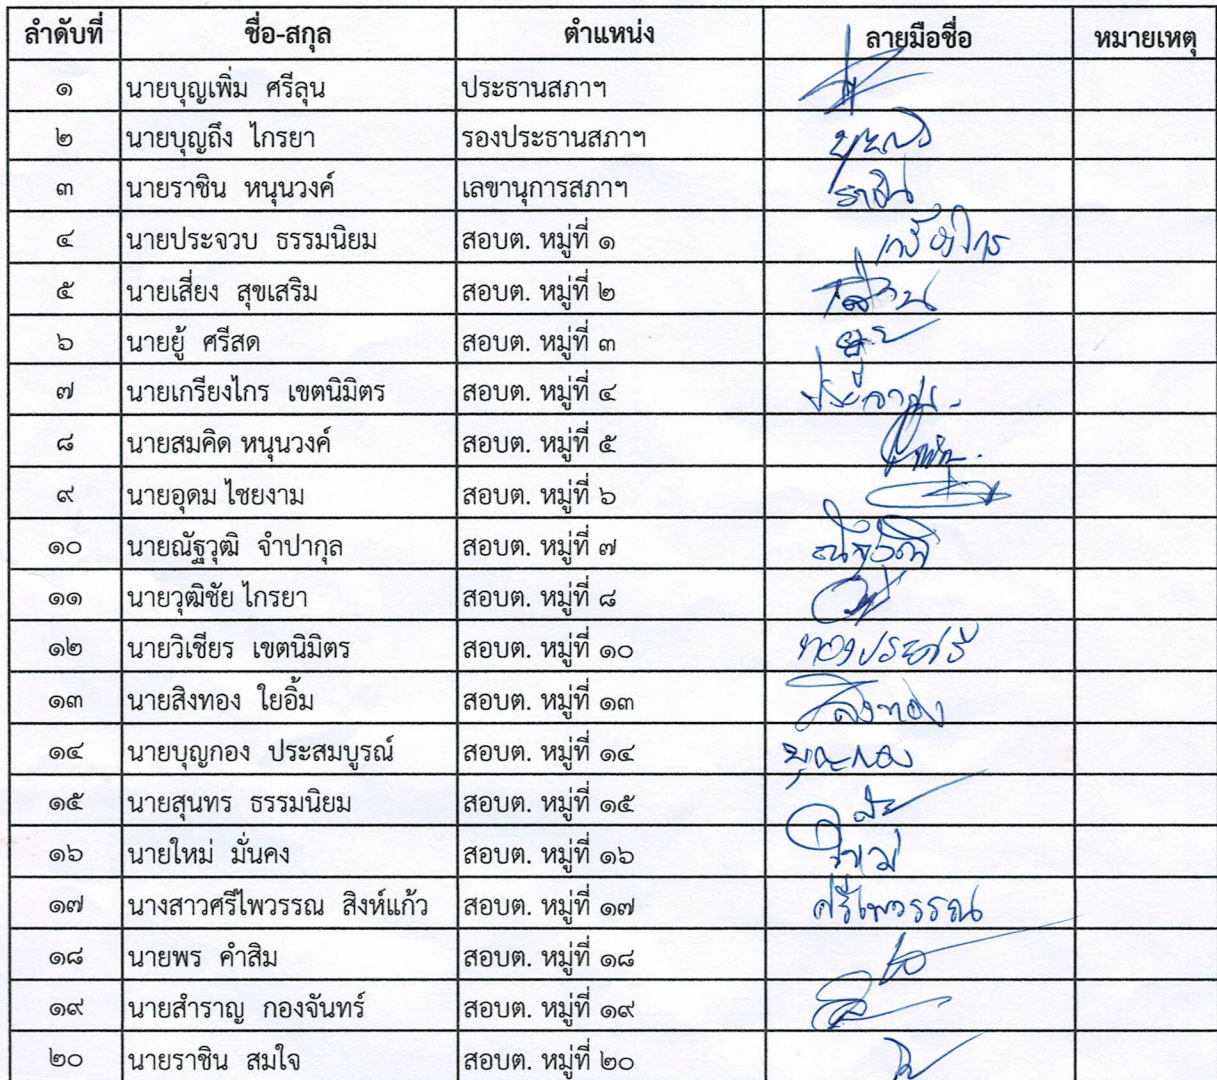 ลำดับที่ ชื่อ-สกุล ตำแหน่ง ลายมือชื่อ หมายเหตุ
๑ นายบุญเพิ่ม ศรีลุน ประธานสภาฯ
๒ นายบุญถึง ไกรยา รองประธานสภาฯ
๓ นายราชิน หนุนวงค์ เลขานุการสภาฯ ราชิน
๔ นายประจวบ ธรรมนิยม สอบต. หมู่ที่ ๑
๕ นายเสี่ยง สุขเสริม สอบต. หมู่ที่ ๒
๖ นายยู้ ศรีสด สอบต. หมู่ที่ ๓
๗ นายเกรียงไกร เขตนิมิตร สอบต. หมู่ที่ ๔
๘ นายสมคิด หนุนวงค์ สอบต. หมู่ที่ ๕
๙ นายอุดม ไชยงาม สอบต. หมู่ที่ ๖
๑๐ นายณัฐวุฒิ จำปากุล สอบต. หมู่ที่ ๗ ณัฐวุฒิ
๑๑ นายวุฒิชัย ไกรยา สอบต. หมู่ที่ ๘
๑๒ นายวิเชียร เขตนิมิตร สอบต. หมู่ที่ ๑๐ ทองประศรี
๑๓ นายสิงทอง ใยอิ้ม สอบต. หมู่ที่ ๑๓ สิงทอง
๑๔ นายบุญกอง ประสมบูรณ์ สอบต. หมู่ที่ ๑๔ บุญกอง
๑๕ นายสุนทร ธรรมนิยม สอบต. หมู่ที่ ๑๕
๑๖ นายใหม่ มั่นคง สอบต. หมู่ที่ ๑๖ ใหม่
๑๗ นางสาวศรีไพวรรณ สิงห์แก้ว สอบต. หมู่ที่ ๑๗ ศรีไพวรรณ
๑๘ นายพร คำสิม สอบต. หมู่ที่ ๑๘
๑๙ นายสำราญ กองจันทร์ สอบต. หมู่ที่ ๑๙
๒๐ นายราชิน สมใจ สอบต. หมู่ที่ ๒๐